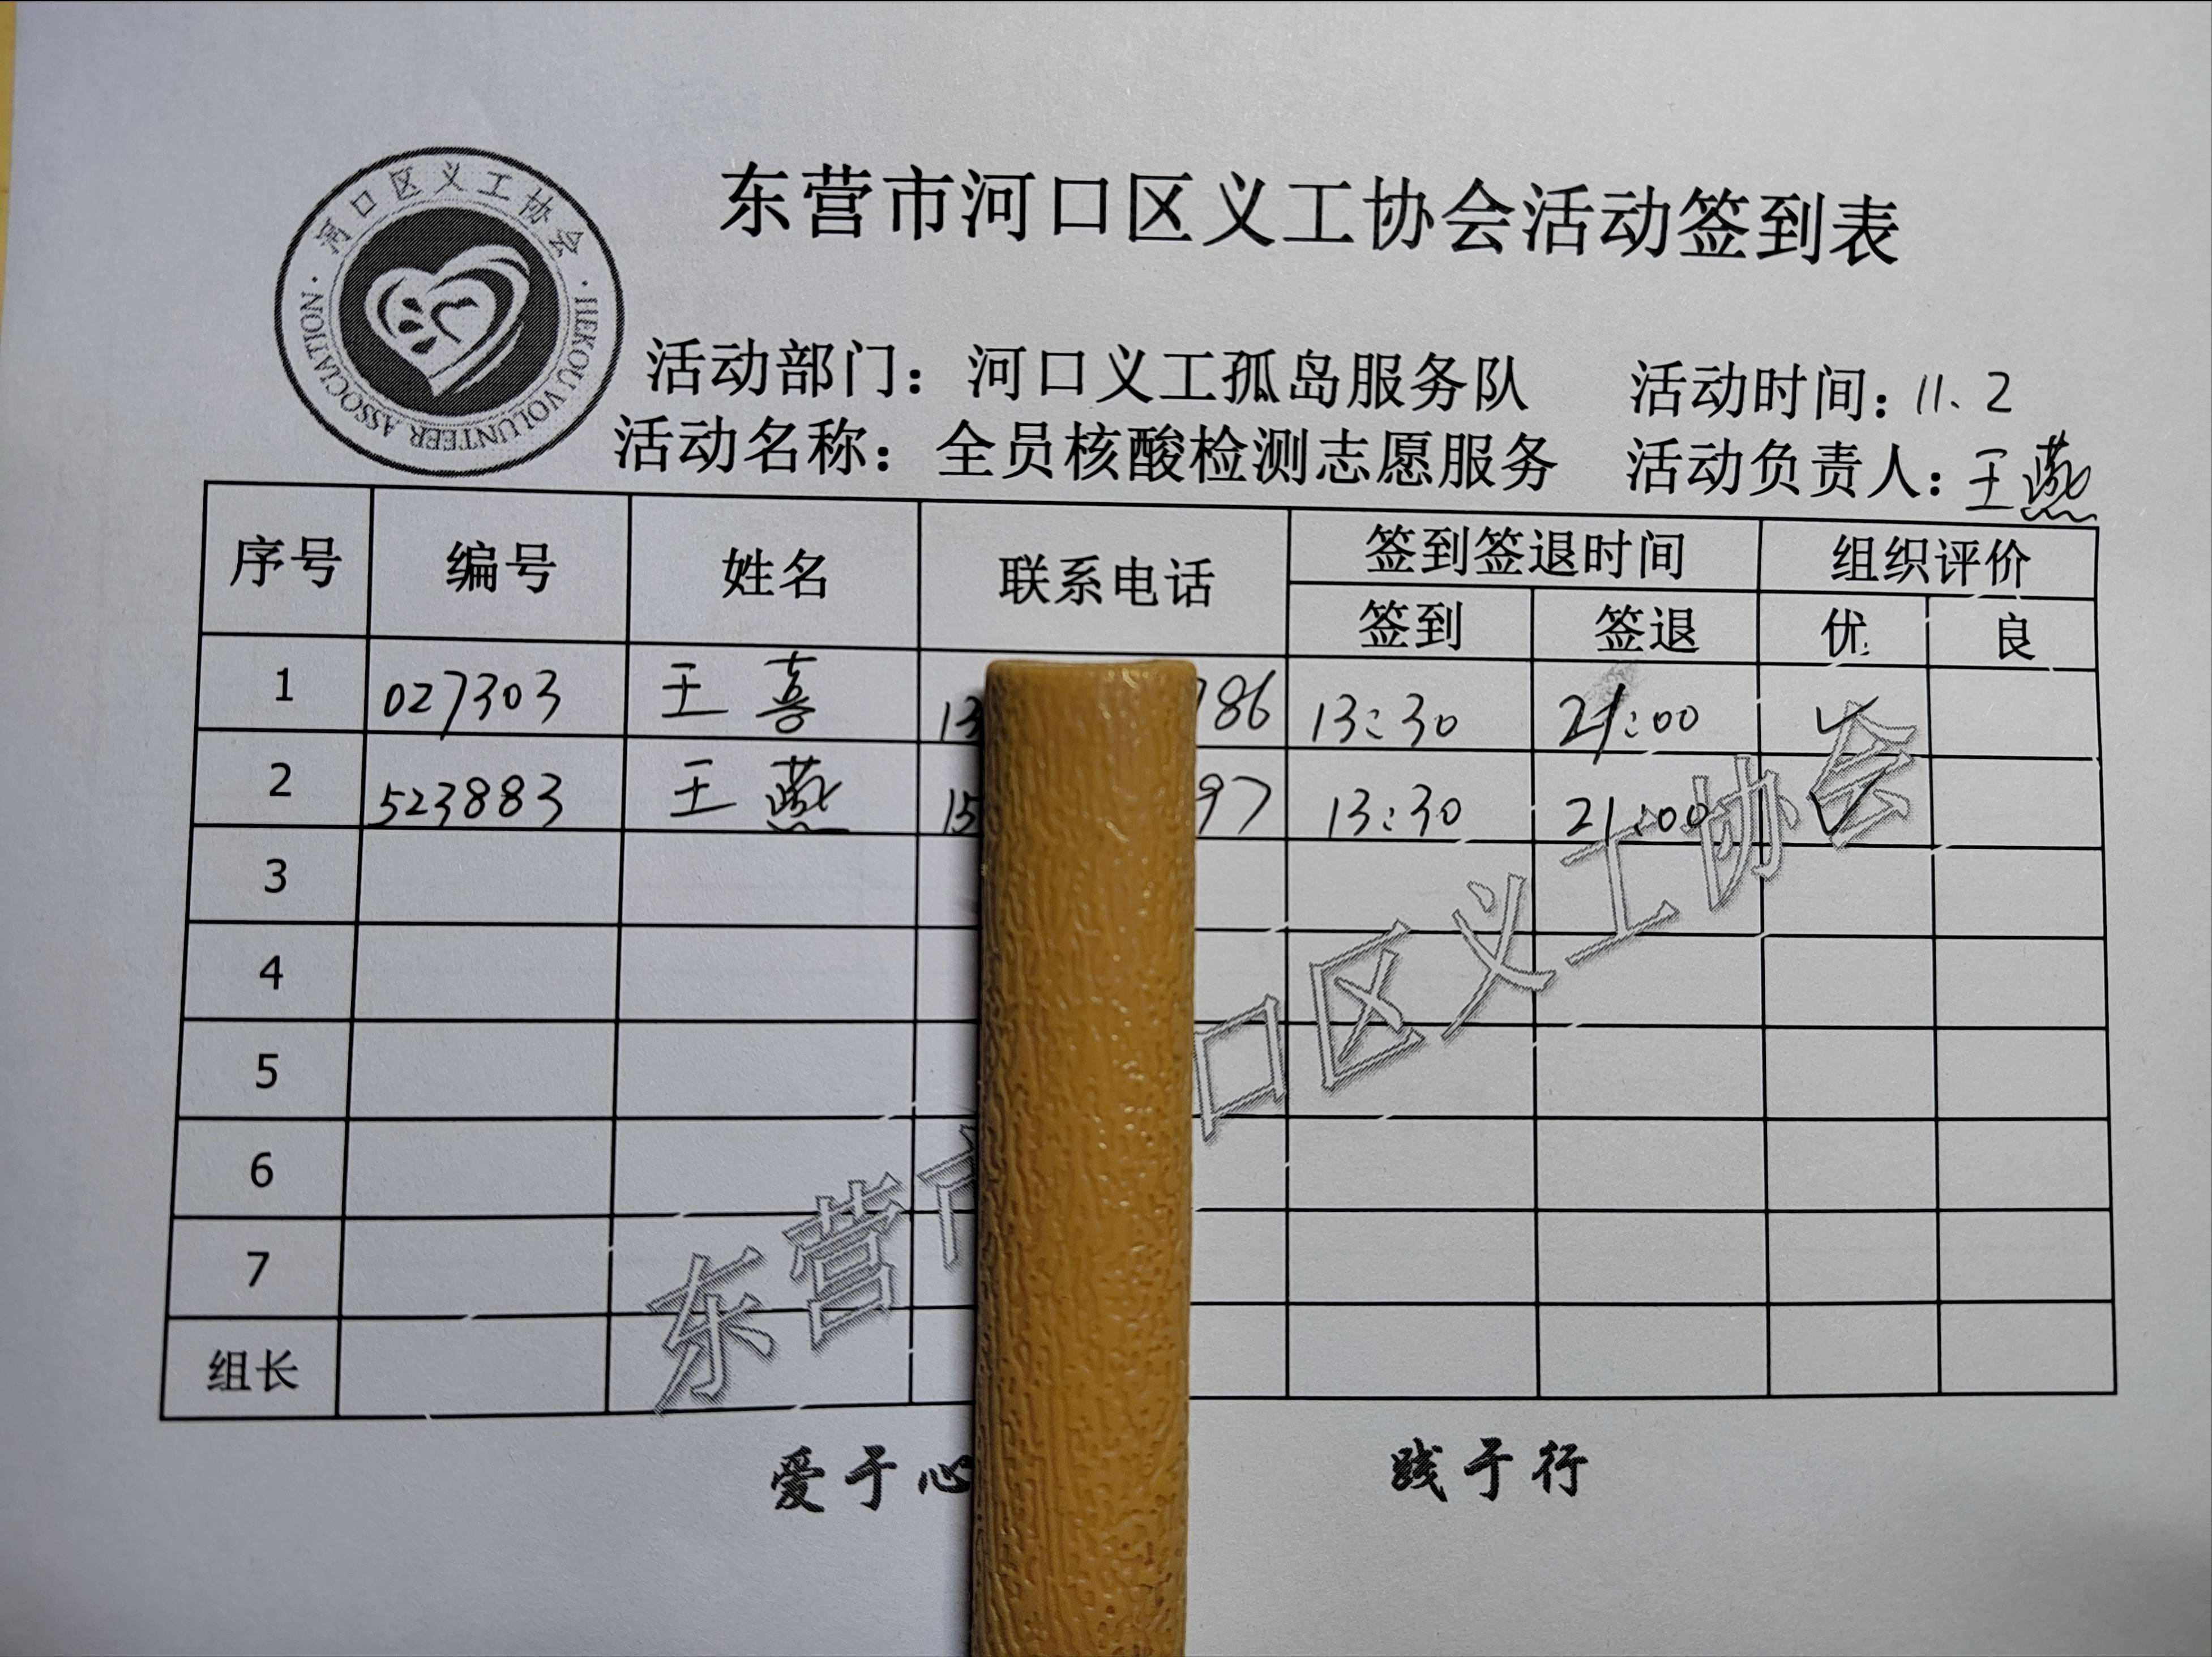 东营市河口区义工协会活动签到表
河口区义工协会
HEKOU VOLUNTEER ASSOCIATION
活动部门：河口义工孤岛服务队 活动时间：11、2
活动名称：全员核酸检测志愿服务 活动负责人：王燕
序号 编号 姓名 联系电话 签到签退时间 组织评价
签到 签退 优 良
1 027303 王喜 13 86 13:30 21:00 ✓
2 523883 王燕 15 97 13:30 21:00 ✓
3
4
5
6
7
组长
东营市 口区义工协会
爱于心 践于行